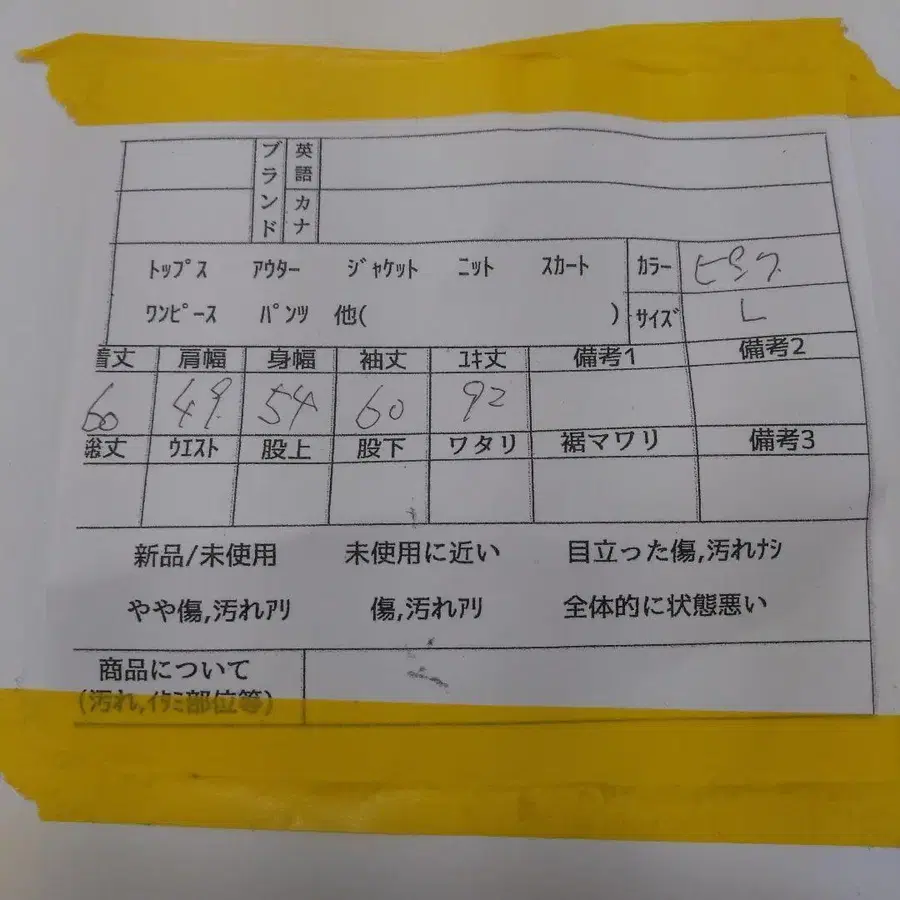 ブランド 英語
カナ
ﾄｯﾌﾟｽ ｱｳﾀｰ ｼﾞｬｹｯﾄ ﾆｯﾄ ｽｶｰﾄ ｶﾗｰ ピンク
ﾜﾝﾋﾟｰｽ ﾊﾟﾝﾂ 他( ) ｻｲｽﾞ L
着丈 肩幅 身幅 袖丈 ﾕｷ丈 備考1 備考2
60 49 54 60 92
総丈 ｳｴｽﾄ 股上 股下 ワタリ 裾マワリ 備考3
新品/未使用 未使用に近い 目立った傷,汚れﾅｼ
やや傷,汚れｱﾘ 傷,汚れｱﾘ 全体的に状態悪い
商品について
(汚れ,ｲﾀﾐ部位等)